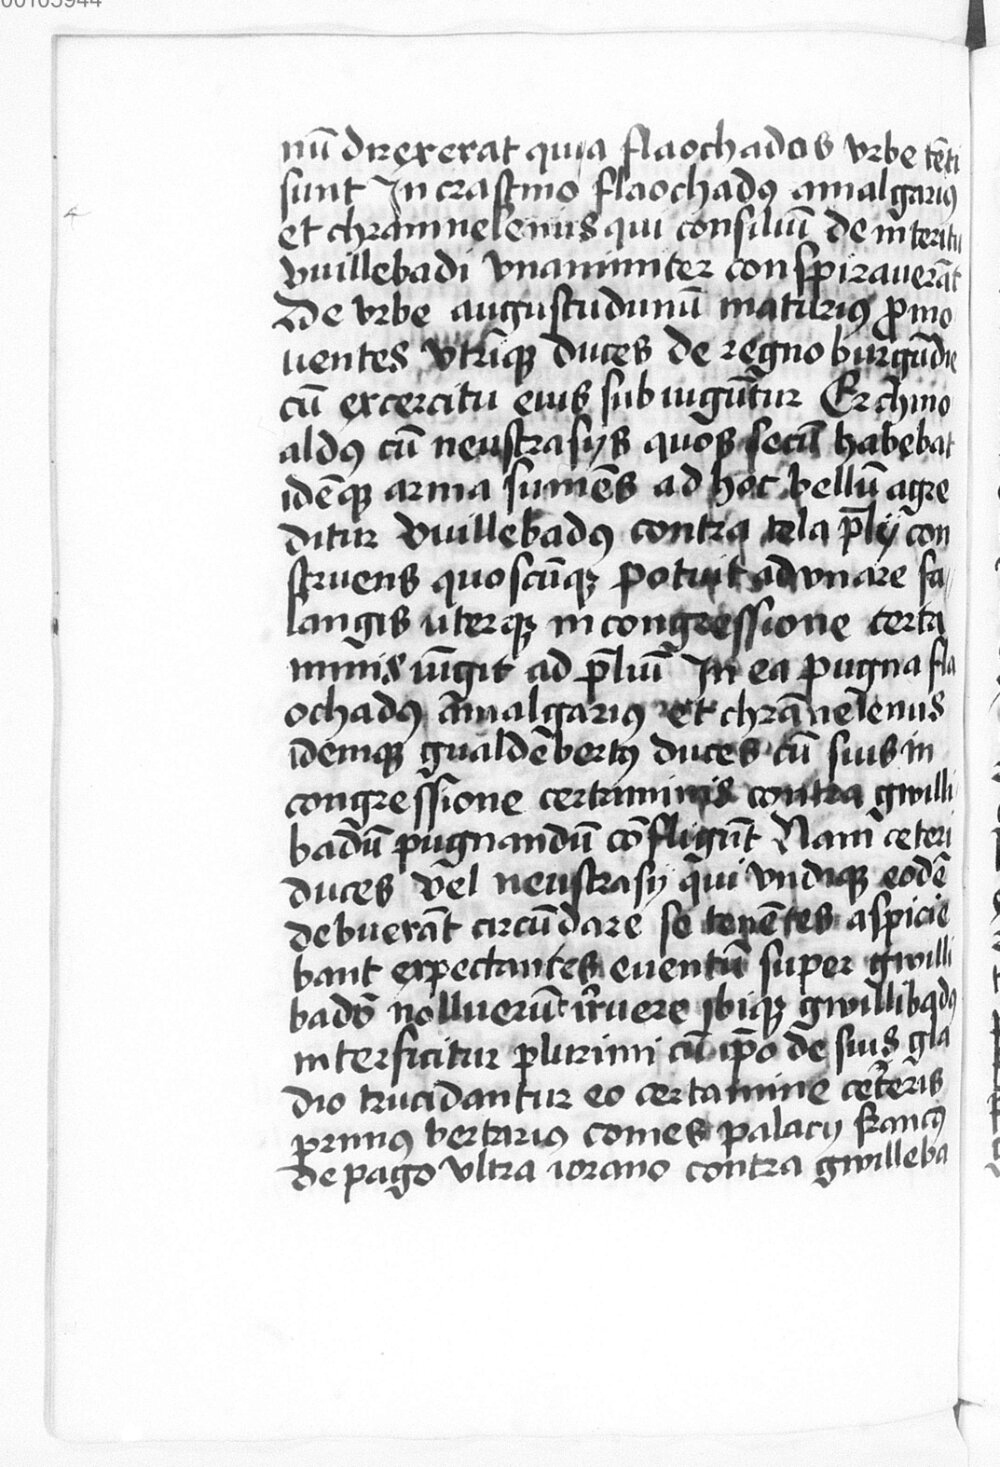 00105944
nū direxerat quia flaochados vrbe tēti
sunt In crastino flaochadꝯ amalgariꝯ
et chramnelenus qui consiliū de interitu
vuillebadi vnanimiter conspirauerāt
De vrbe augustudunū maturiꝯ ꝓmo
uentes vtriqꝫ duces de regno burgūdie
cū excercitu eius subiugūtur Erchino
aldꝯ cū neustrasijs quos secū habebat
idēqꝫ arma sumēs ad hoc bellū agre
ditur vuillebadꝯ contra tela p̄lij con
struens quoscūqꝫ potuit adunare fa
langis uterqꝫ in congressione certa
minis iūgit ad p̄liū In ea pugna fla
ochadꝯ amalgariꝯ et chrānelenus
idemqꝫ gualdēbertꝯ duces cū suis in
congressione certaminis contra gwilli
badū pugnandū cōfligūt Nam ceteri
duces vel neustrasij qui vndiqꝫ eodē
debuerāt circūdare se tenētes aspicie
bant expectantes euentū super gwilli
badū nolluerūt irruere ibiqꝫ gwillibadꝯ
interficitur plurimi cū ip̄o de suis gla
dio trucidantur eo certamine ceteris
primꝯ bertariꝯ comes palacij francꝯ
de pago vltra iorano contra gwilleba